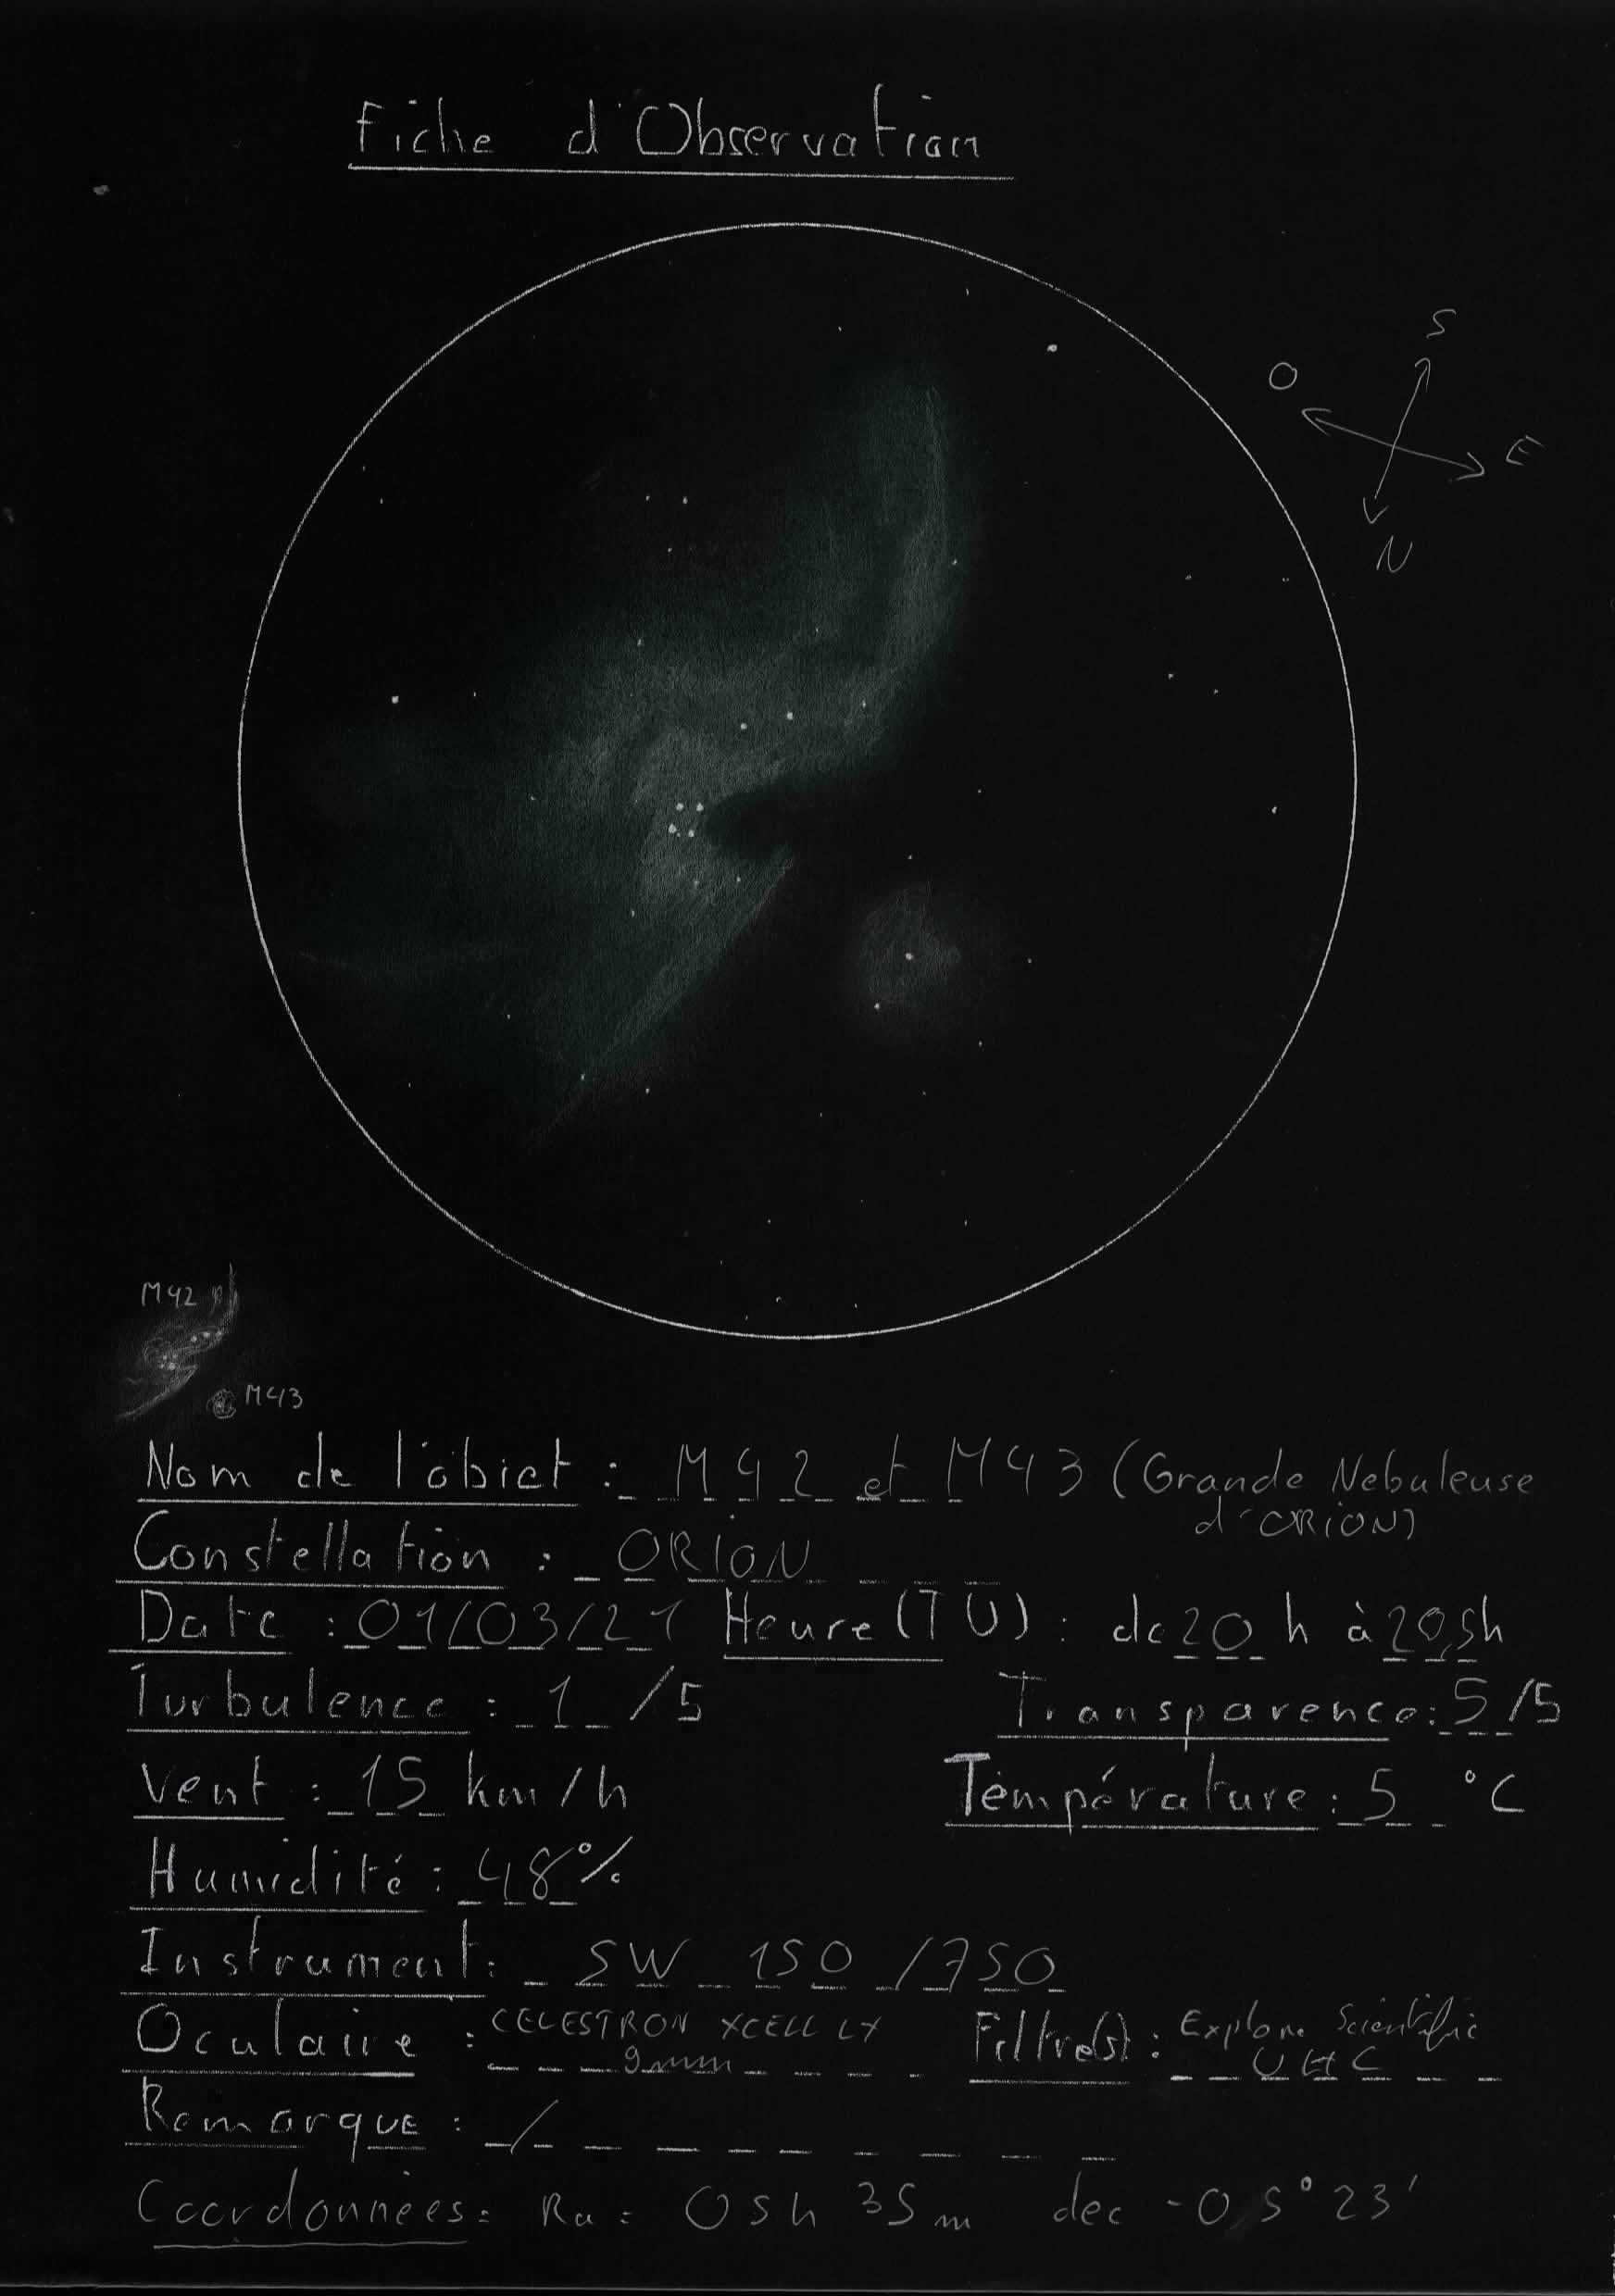 Fiche d'Observation
S
O
E
N
M42
M43
Nom de l'objet : M42 et M43 (Grande Nebuleuse
d'ORION)
Constellation : ORION
Date : 01/03/21 Heure (TU) : de 20 h à 20,5h
Turbulence : 1 /5 Transparence : 5/5
Vent : 15 km/h Température : 5 °C
Humidité : 48%
Instrument : SW 150 /750
Oculaire : CELESTRON XCELL LX Filtre(s) : Explore Scientific
9mm UHC
Remarque : /
Coordonnées : Ra = 05h 35m dec -05°23'